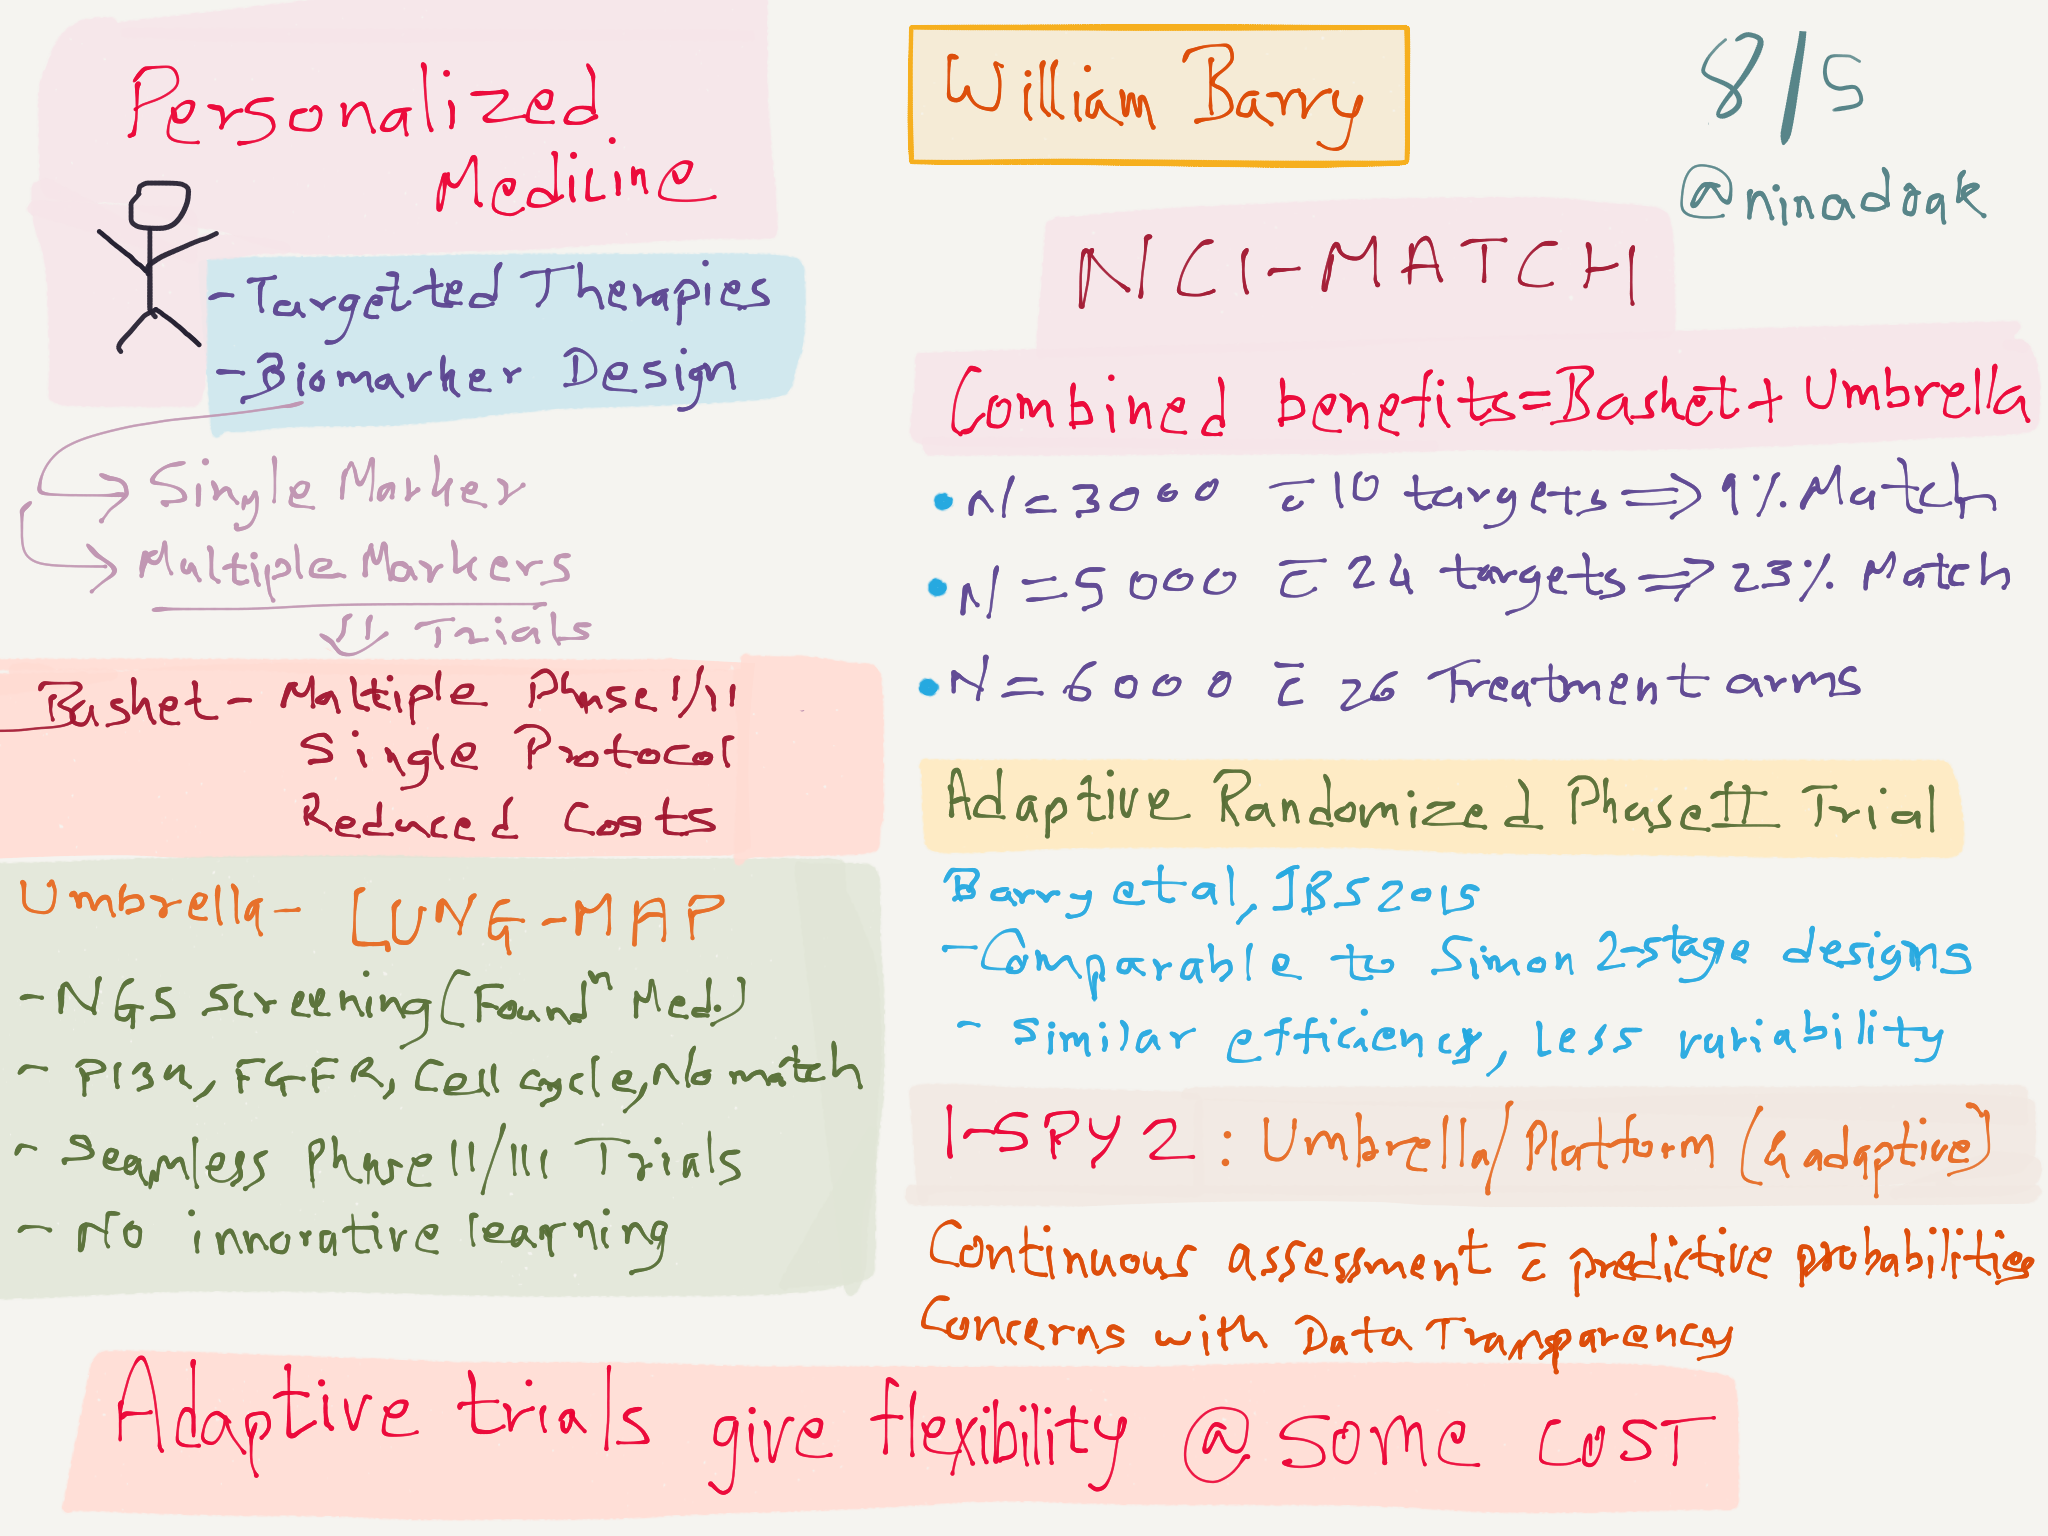 Personalized
Medicine
- Targetted Therapies
- Biomarker Design
→ Single Marker
→ Multiple Markers
⇓ Trials
Basket - Multiple Phase I/II
Single Protocol
Reduced Costs
Umbrella - LUNG-MAP
- NGS screening (Foundⁿ Med.)
- PI3K, FGFR, Cell cycle, No match
- Seamless Phase II/III Trials
- No innovative learning
William Barry
8/5
@ninadoak
NCI-MATCH
Combined benefits = Basket + Umbrella
• N = 3000 c̄ 10 targets ⇒ 9% Match
• N = 5000 c̄ 24 targets ⇒ 23% Match
• N = 6000 c̄ 26 Treatment arms
Adaptive Randomized Phase II Trial
Barry et al, JBS 2015
- Comparable to Simon 2-stage designs
- similar efficiency, less variability
I-SPY 2 : Umbrella/Platform (& adaptive)
Continuous assessment c̄ predictive probabilities
Concerns with Data Tranparency
Adaptive trials give flexibility @ some cost